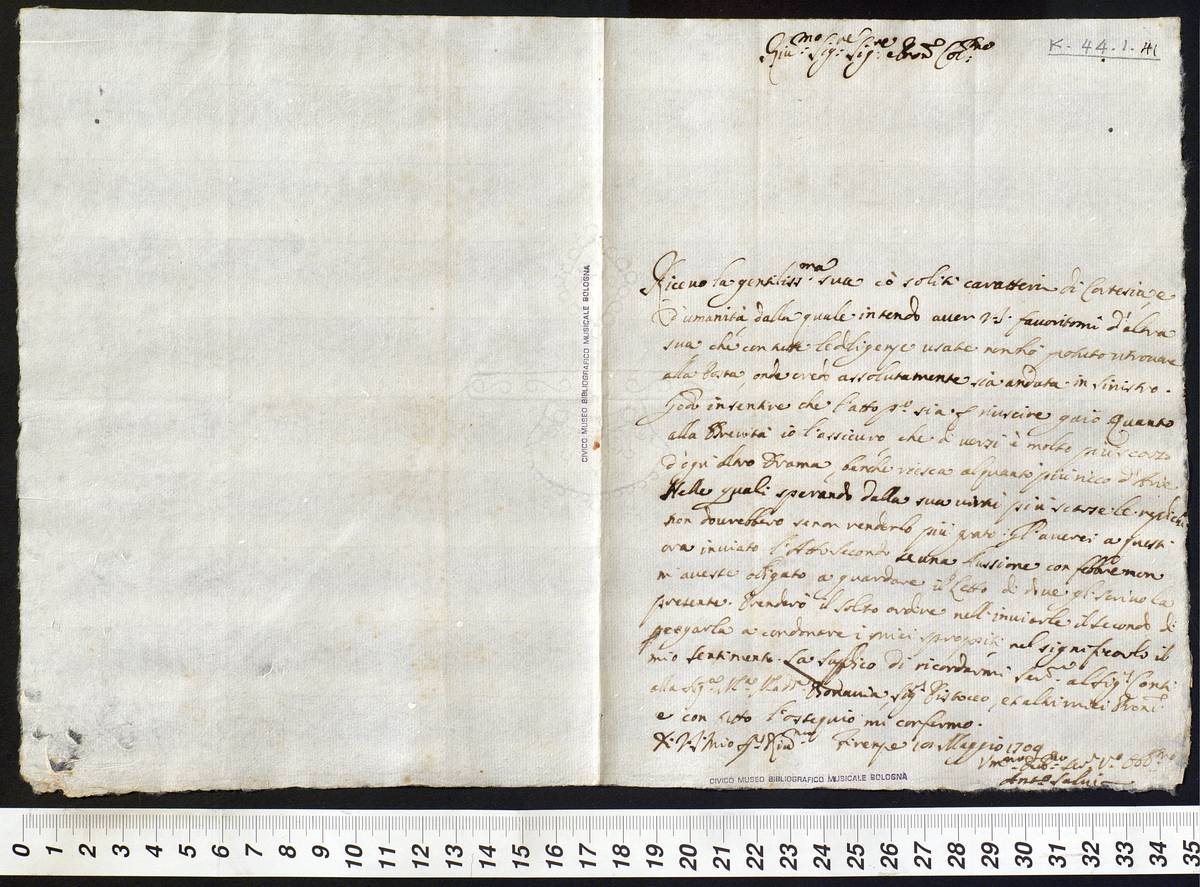 K. 44. 1. 41
Riu:mo Sig:re Sig:re e Pron Col:mo
Riceuo la gentiliss:ma sua cõ soliti caratteri di Cortesia, e
d'umanità dalla quale intendo auer V.S. fauoritomi d'altra
sua che con tutte le diligenze usate non hò potuto ritrouare
alla Posta, onde credo assolutamente sia andata in sinistro.
Godo in sentire che l'atto p.o sia p riuscire gaio. Quanto
alla Breuità io l'assicuro che di uersi è molto più corto
d'ogni altro Drama, benche riesca alquanto più ricco d'Arie
Nelle quali sperando dalla sua più scarse le repliche
non dourebbero senon renderlo più grato. Gl'auerei a quest'
ora inuiato l'Atto Secondo se una flussione con febbre non
m'auesse obligato a guardare il Letto di doue gli scriuo la
presente. Prenderò il solito ordine nell'inuiarle il secondo di
pregarla a condonare i miei spropositi nel significarle il
mio sentimento. La supplico di ricordarmi ser.e al Sig.r Conti
alla Sig.ra M.a Mad.e Sig.r Pistocco, et altri miei Proni
e con tutto l'ossequio mi confermo.
Di V.S. mio Sig.r Riu:mo Firenze 10 Maggio 1709
Vm:mo Ser.e V.o Obb:mo
Ant.o Salui
CIVICO MUSEO BIBLIOGRAFICO MUSICALE BOLOGNA
CIVICO MUSEO BIBLIOGRAFICO MUSICALE BOLOGNA
0 1 2 3 4 5 6 7 8 9 10 11 12 13 14 15 16 17 18 19 20 21 22 23 24 25 26 27 28 29 30 31 32 33 34 35